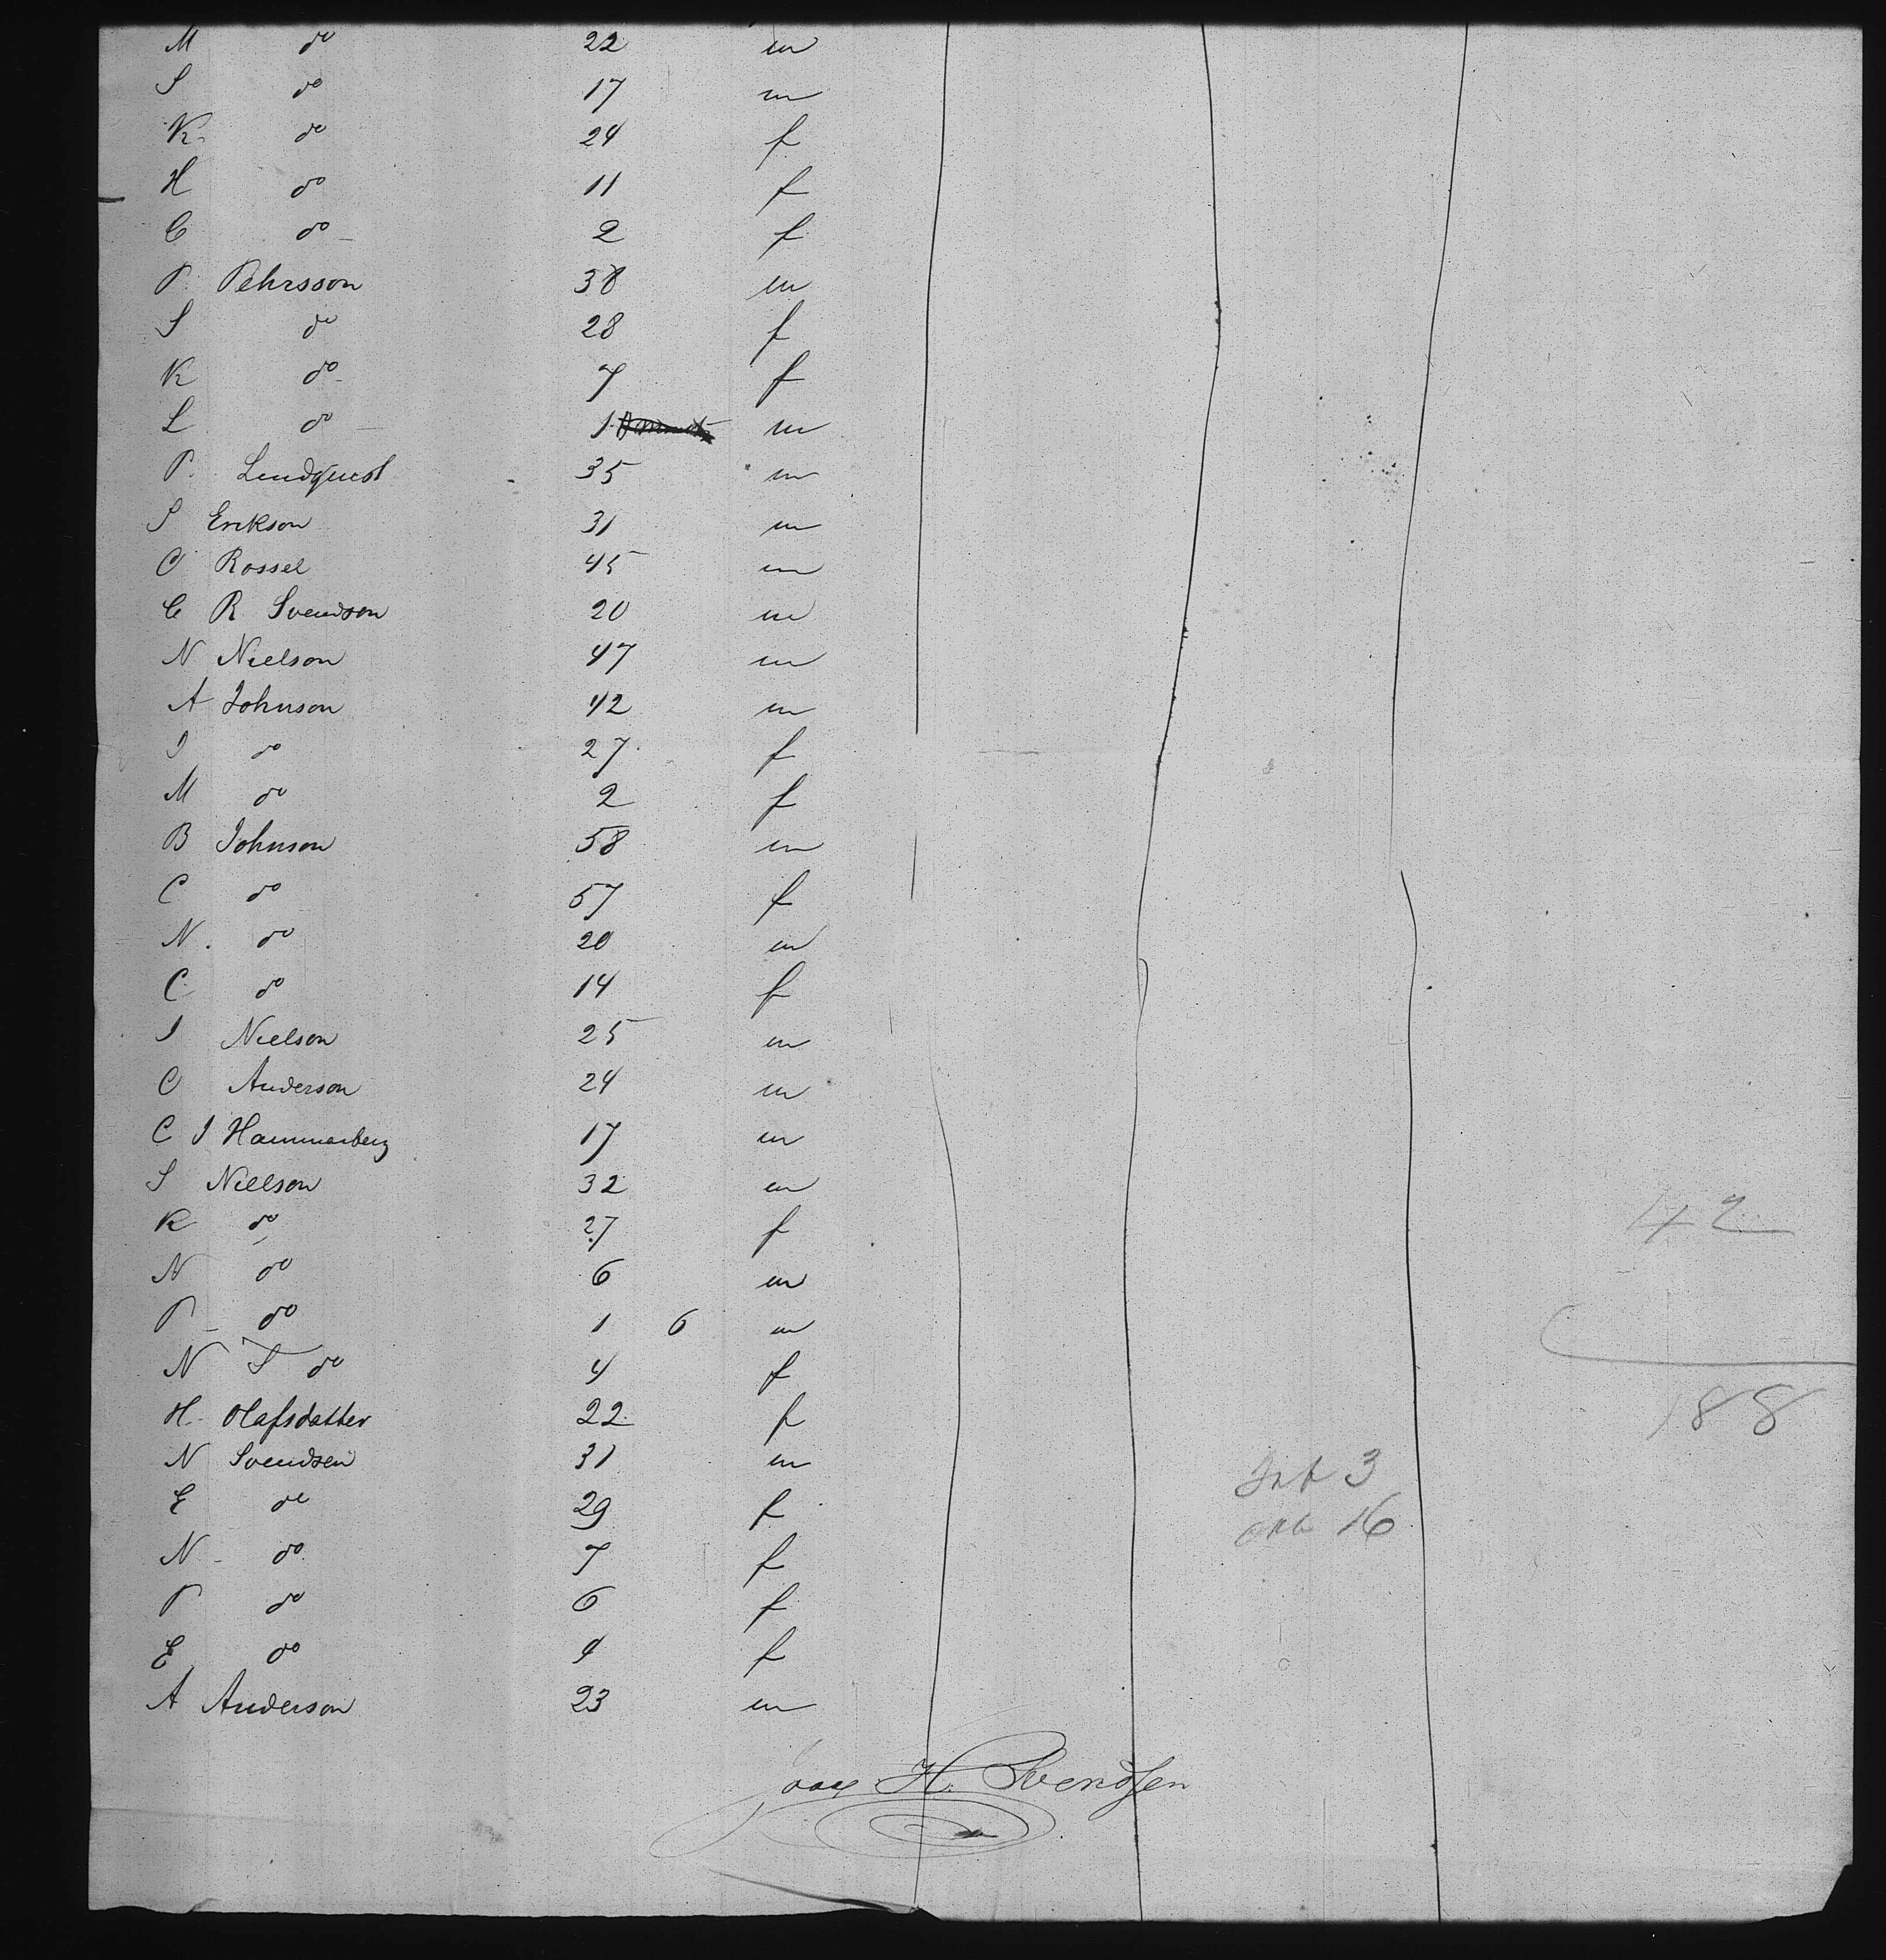 M do 22 m
S do 17 m
K do 24 f
H do 11 f
C do 2 f
P. Pehrsson 38 m
S do 28 f
K do 7 f
L do 1 m
P. Lindquist 35 m
S Erikson 31 m
O Rossel 45 m
C R Svendson 20 m
N Nielson 47 m
A Johnson 42 m
I do 27 f
M do 2 f
B Johnson 58 m
C do 57 f
N. do 20 m
C do 14 f
I Nielson 25 m
O Anderson 24 m
C I Hammarberg 17 m
S Nielson 32 m
K do 27 f
42
N do 6 m
P do 1 6 m
N S do 4 f
H. Olafsdatter 22 f
188
N Svendsen 31 m
Inf 3
E do 29 f
16
N do 7 f
P do 6 f
E do 4 f
A Anderson 23 m
H. Svendsen